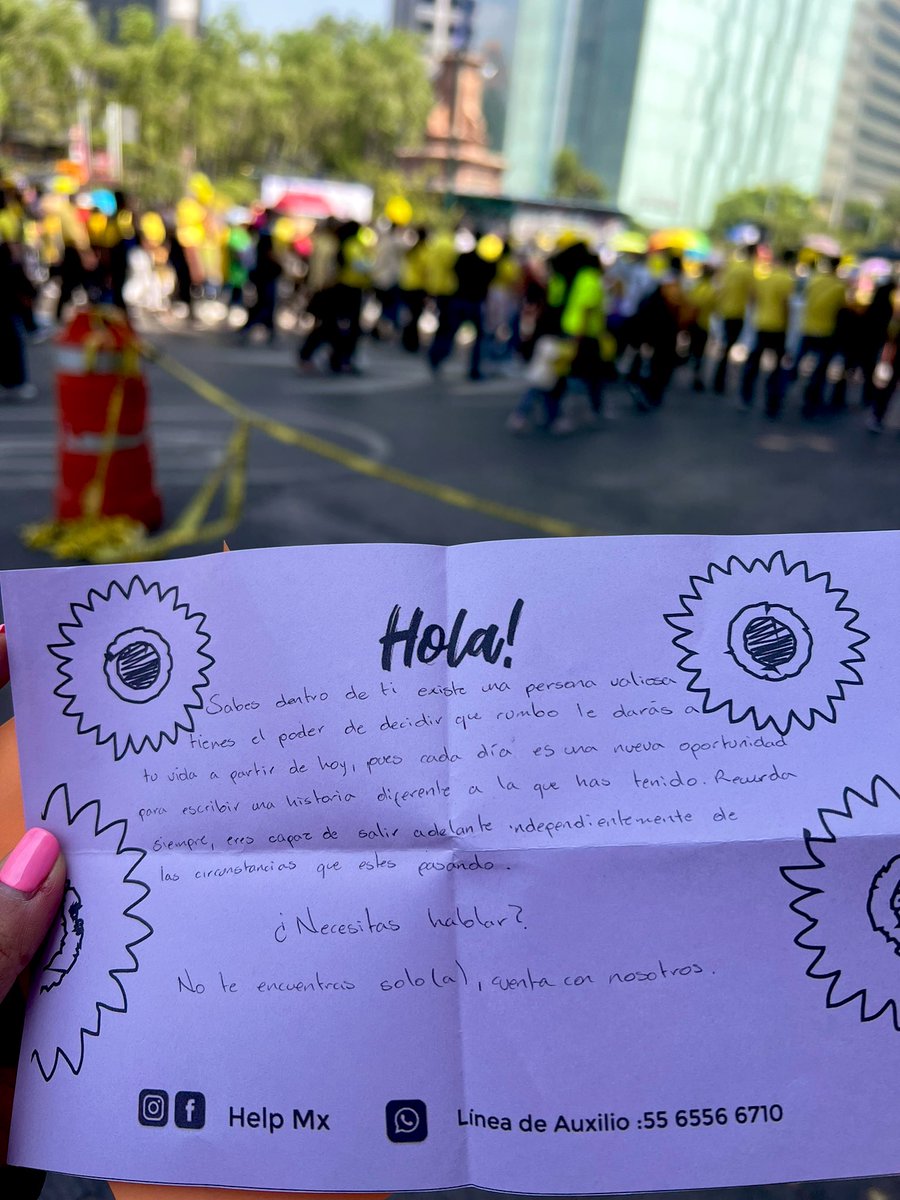 Hola!
Sabes dentro de ti existe una persona valiosa
tienes el poder de decidir que rumbo le darás a
tu vida a partir de hoy, pues cada día es una nueva oportunidad
para escribir una historia diferente a la que has tenido. Recuerda
siempre, eres capaz de salir adelante independientemente de
las circunstancias que estes pasando.
¿Necesitas hablar?
No te encuentras solo(a), cuenta con nosotros.
Help Mx
Línea de Auxilio :55 6556 6710